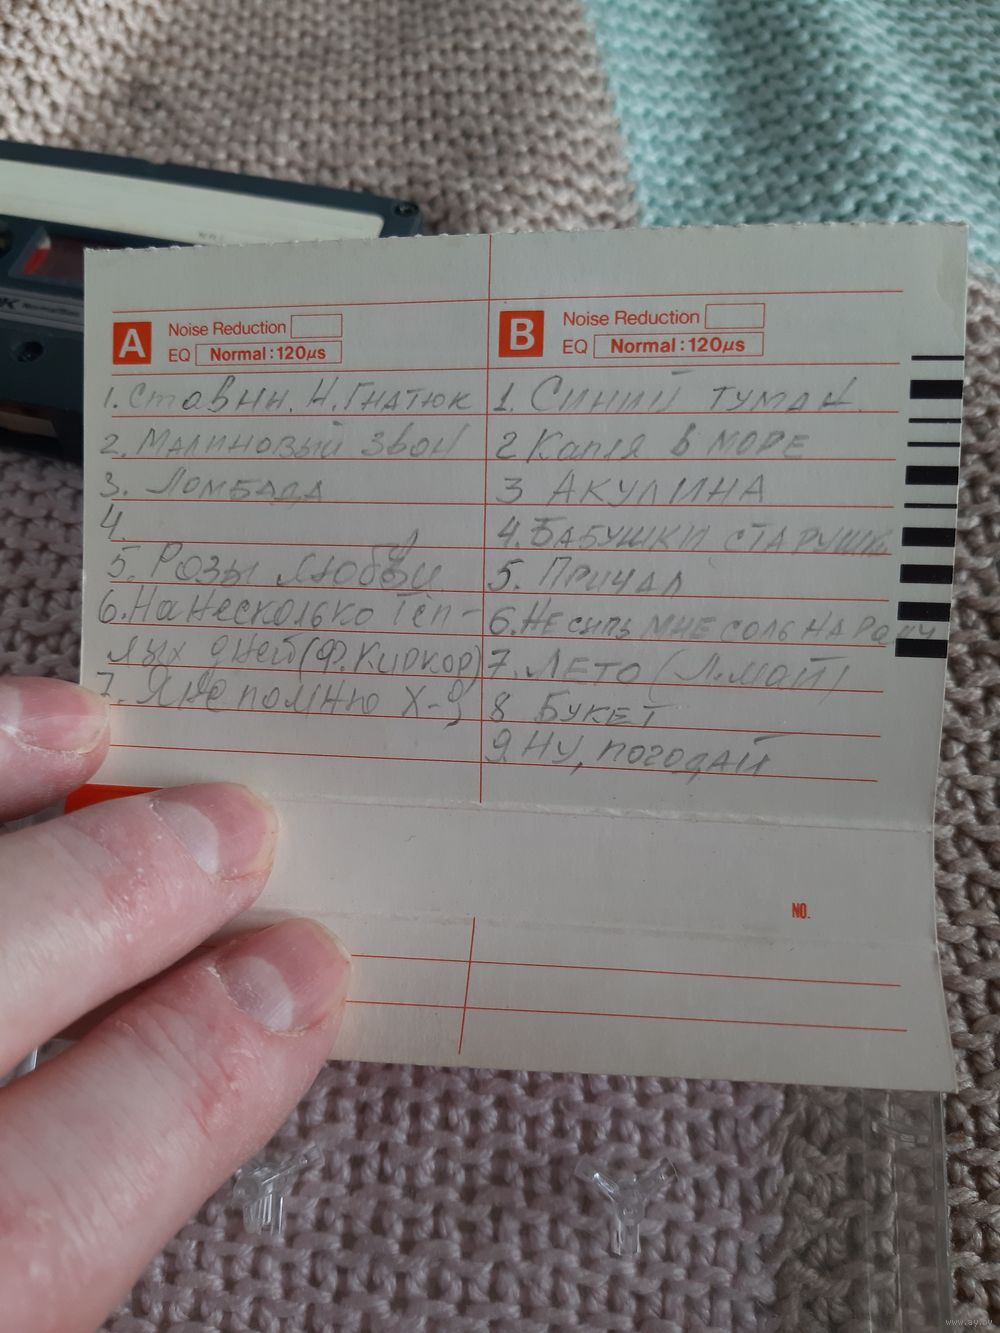 A Noise Reduction
EQ Normal:120μs
1. Ставни. Н. Гнатюк
2. Малиновый звон
3. Ломбада
4.
5. Розы любви
6. На несколько теп-
лых дней (Ф. Киркор)
7. Я не помню Х-З
B Noise Reduction
EQ Normal:120μs
1. Синий туман.
2 Капля в море
3 Акулина
4. Бабушки старушки
5. Причал
6. Не сыпь мне соль на рану
7. Лето (Л. Май)
8 Букет
9. Ну, погодай
NO.
www.ay.by